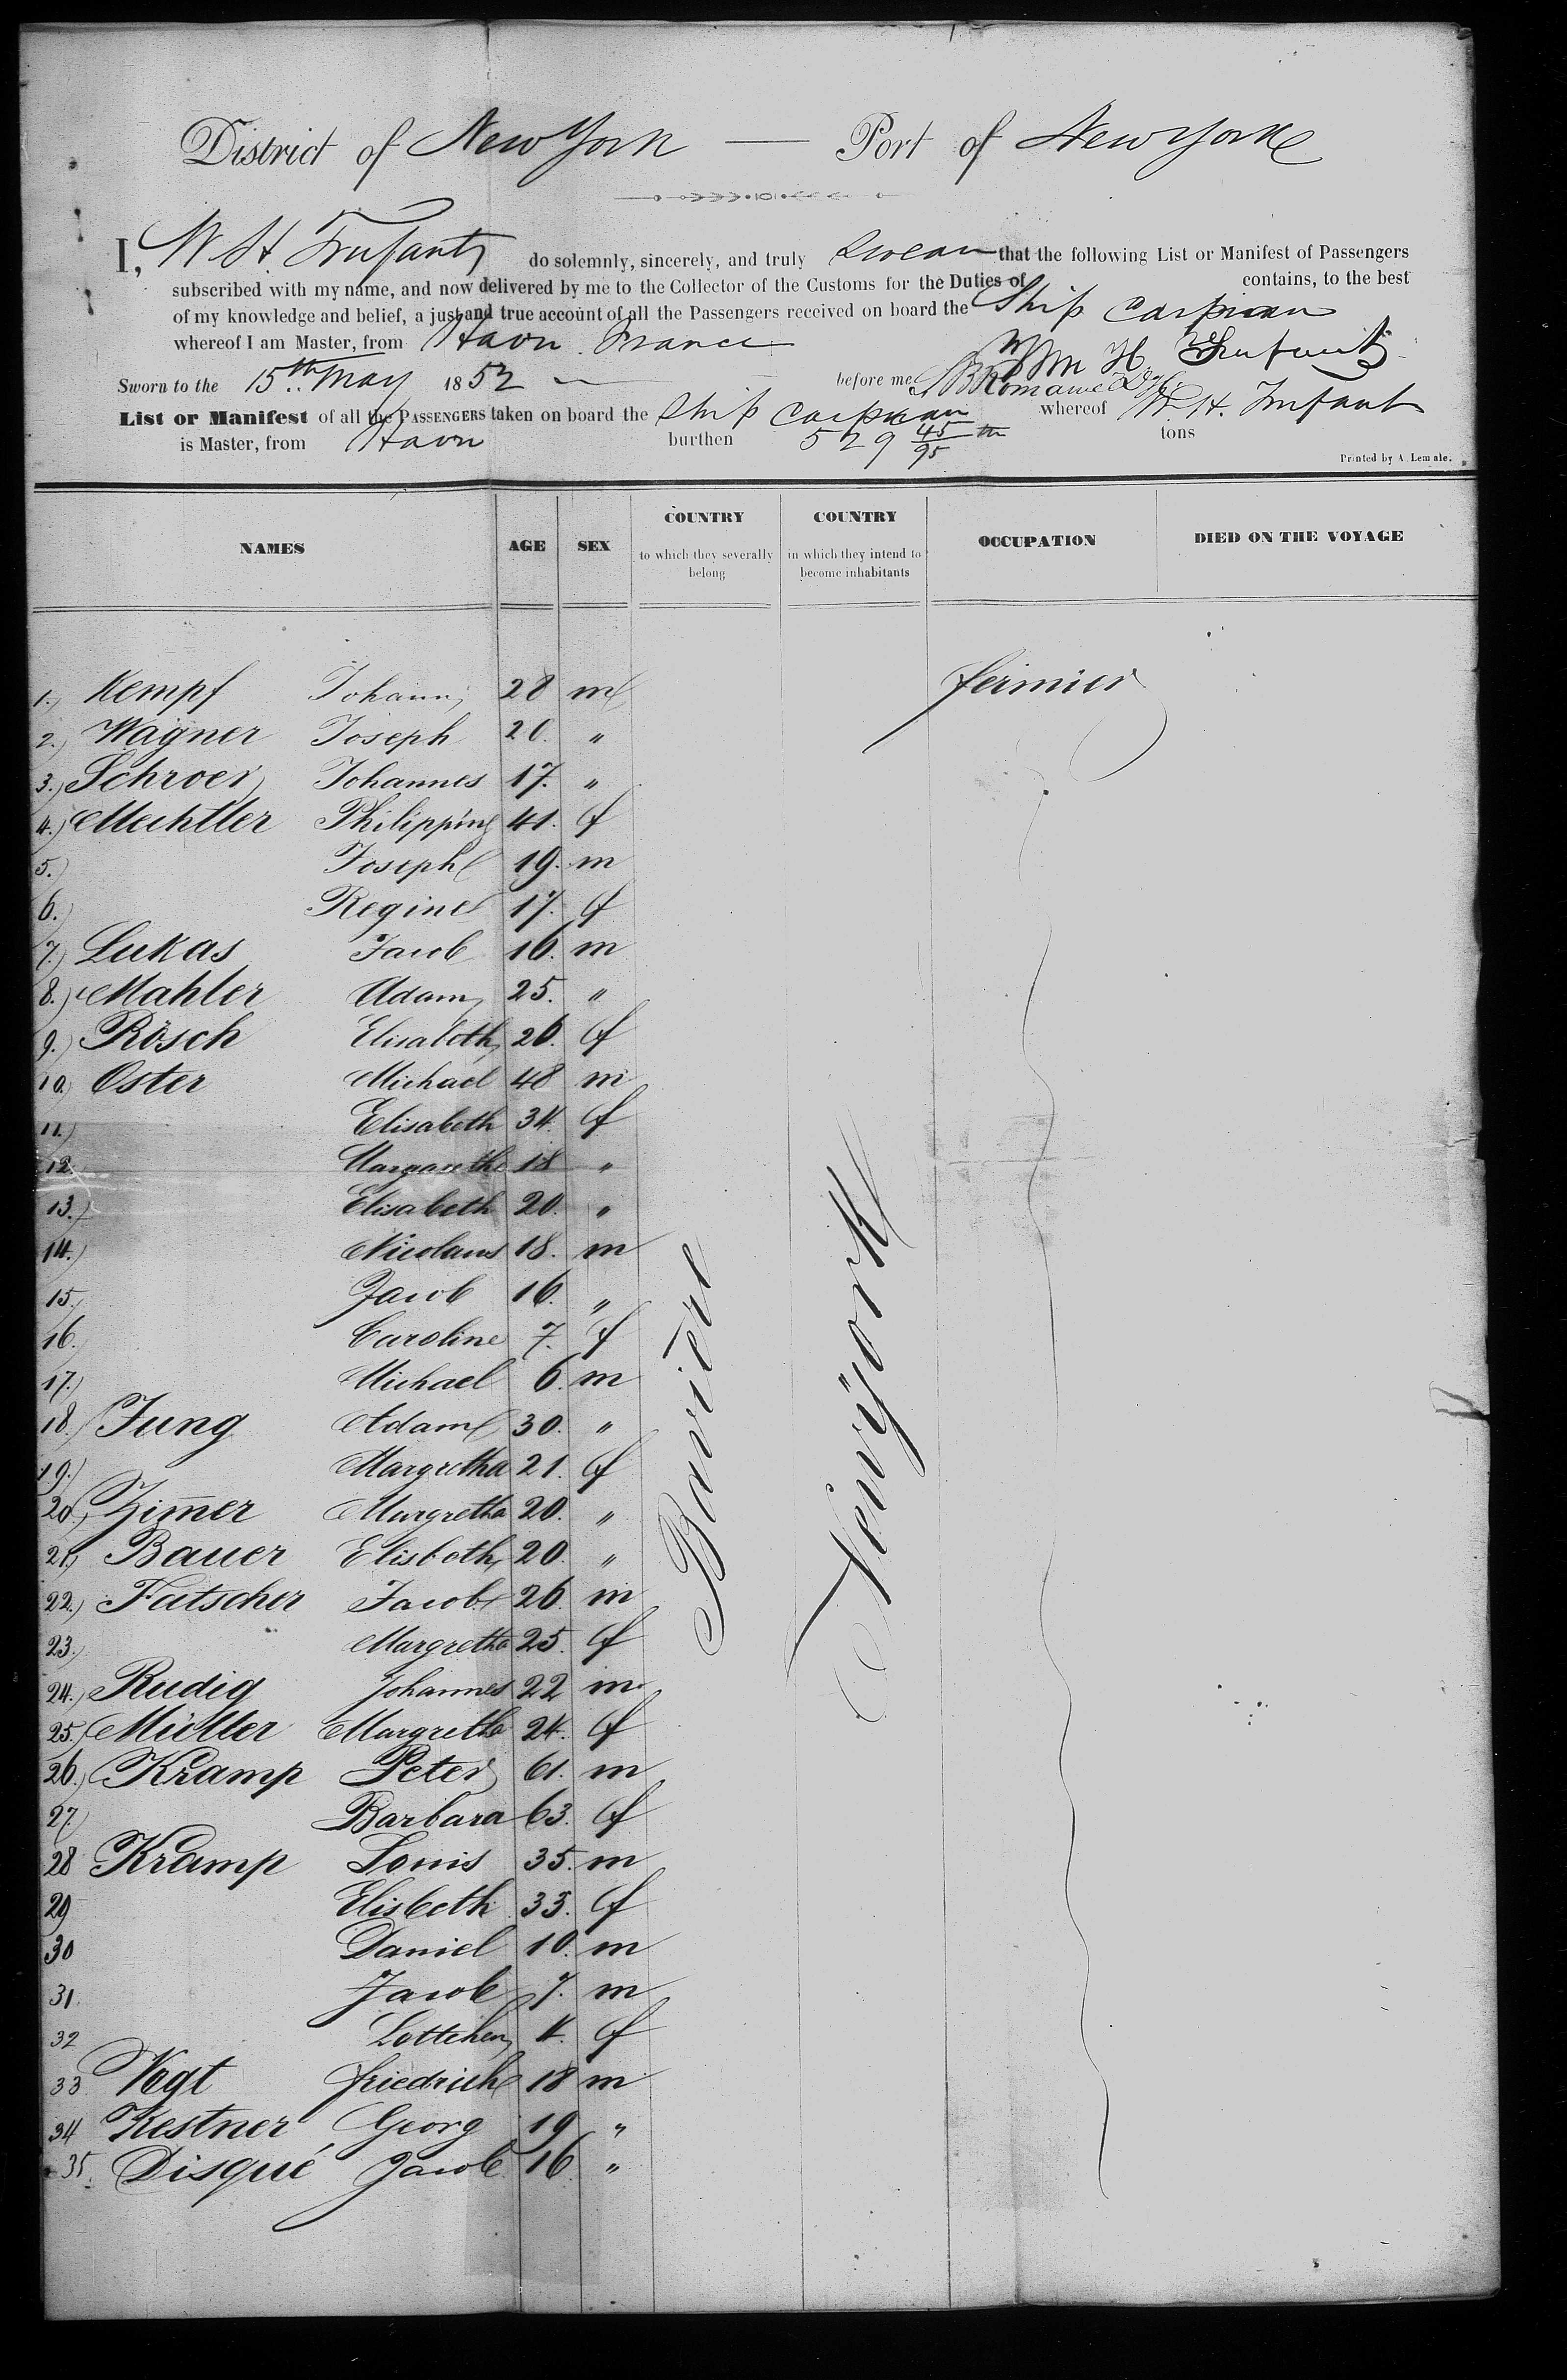 District of New York — Port of New York
I, W. H. Trufant do solemnly, sincerely, and truly Swear that the following List or Manifest of Passengers
subscribed with my name, and now delivered by me to the Collector of the Customs for the Duties of contains, to the best
of my knowledge and belief, a just and true account of all the Passengers received on board the Ship Caspian
whereof I am Master, from Havre France
Wm H Trufant
Sworn to the 15th May 1852 before me
List or Manifest of all the PASSENGERS taken on board the Ship Caspian whereof W. H. Trufant
is Master, from Havre burthen 529 45/95 tons
Printed by A. Lemale.
NAMES AGE SEX COUNTRY to which they severally belong COUNTRY in which they intend to become inhabitants OCCUPATION DIED ON THE VOYAGE
1.) Kempf Johann 28 m fermier
2.) Wagner Joseph 20. "
3.) Schroer Johannes 17. "
4.) Mechtler Philippine 41. f
5.) Joseph 19. m
6.) Regine 17. f
7.) Lukas Jacob 16. m
8.) Mahler Adam 25. "
9.) Rösch Elisabeth 26. f
10.) Oster Michael 48 m
11.) Elisabeth 34. f
12. Margaretha 18 "
13.) Elisabeth 20. "
14.) Nicolaus 18. m
15.) Jacob 16. "
16. Caroline 7. f
17.) Michael 6. m
18. Jung Adam 30. "
19.) Margretha 21. f
20.) Zim̄er Margretha 20. "
21.) Bauer Elisbeth 20. "
22.) Fatscher Jacob 26. m
23.) Margretha 25. f
24.) Rudig Johannes 22 m
25.) Müller Margretha 24. f
26.) Kramp Peter 61. m
27.) Barbara 63. f
28 Kramp Louis 35. m
29 Elisbeth 33. f
30 Daniel 10. m
31. Jacob 7. m
32 Lottchen 4. f
33 Vogt Friedrich 18 m
34 Kestner Georg 19 "
35. Disqué Jacob 16 "
Bavière
Newÿork